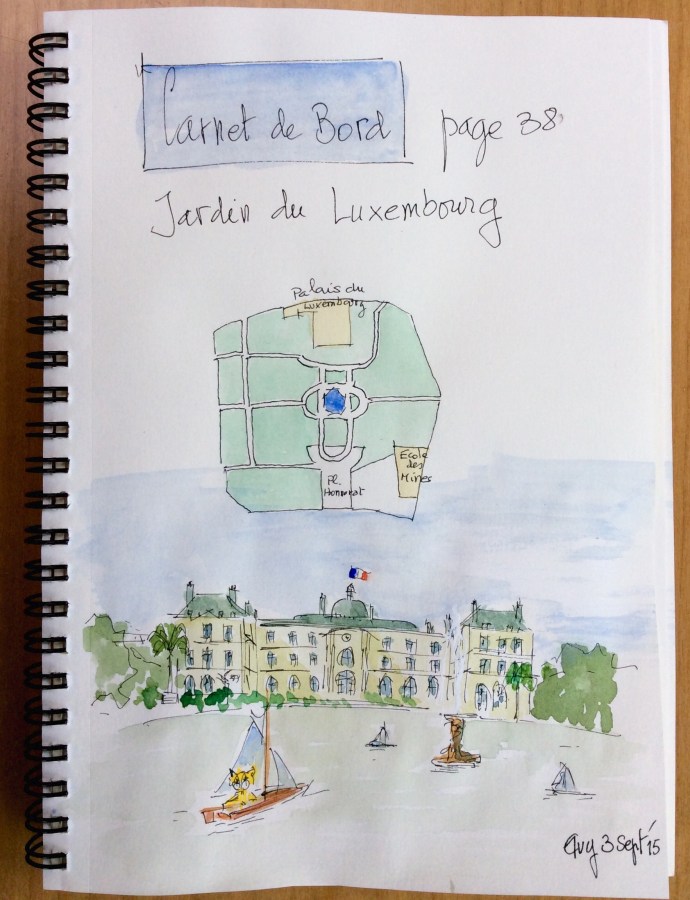 Carnet de Bord page 38
Jardin du Luxembourg
Palais du
Luxembourg
Ecole
des
Mines
Pl.
Honnorat
3 Sept '15